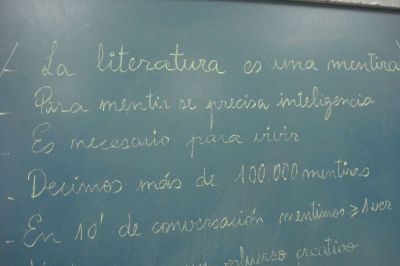 - La literatura es una mentira
- Para mentir se precisa inteligencia
- Es necesario para vivir
- Decimos más de 100.000 mentiras
- En 10' de conversación mentimos ≥ 1 vez
esfuerzo creativo